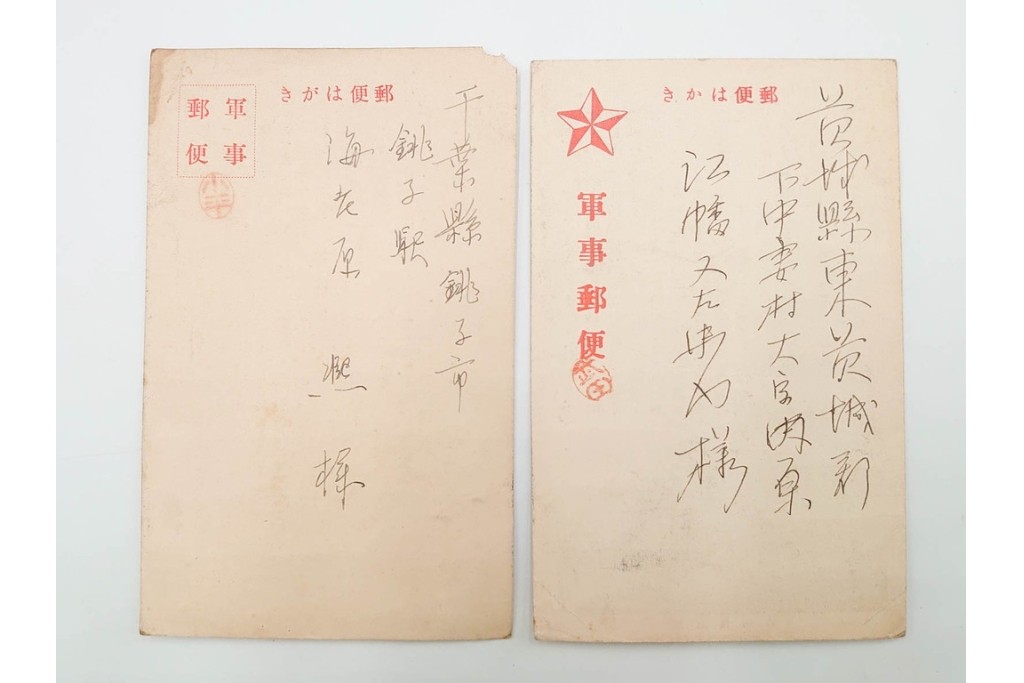 郵便はがき
軍事
郵便
千葉縣銚子市
銚子駅
海老原 熙 様
郵便はかき
軍事郵便
茨城縣東茨城郡
下中妻村大字内原
江幡又左衛門様